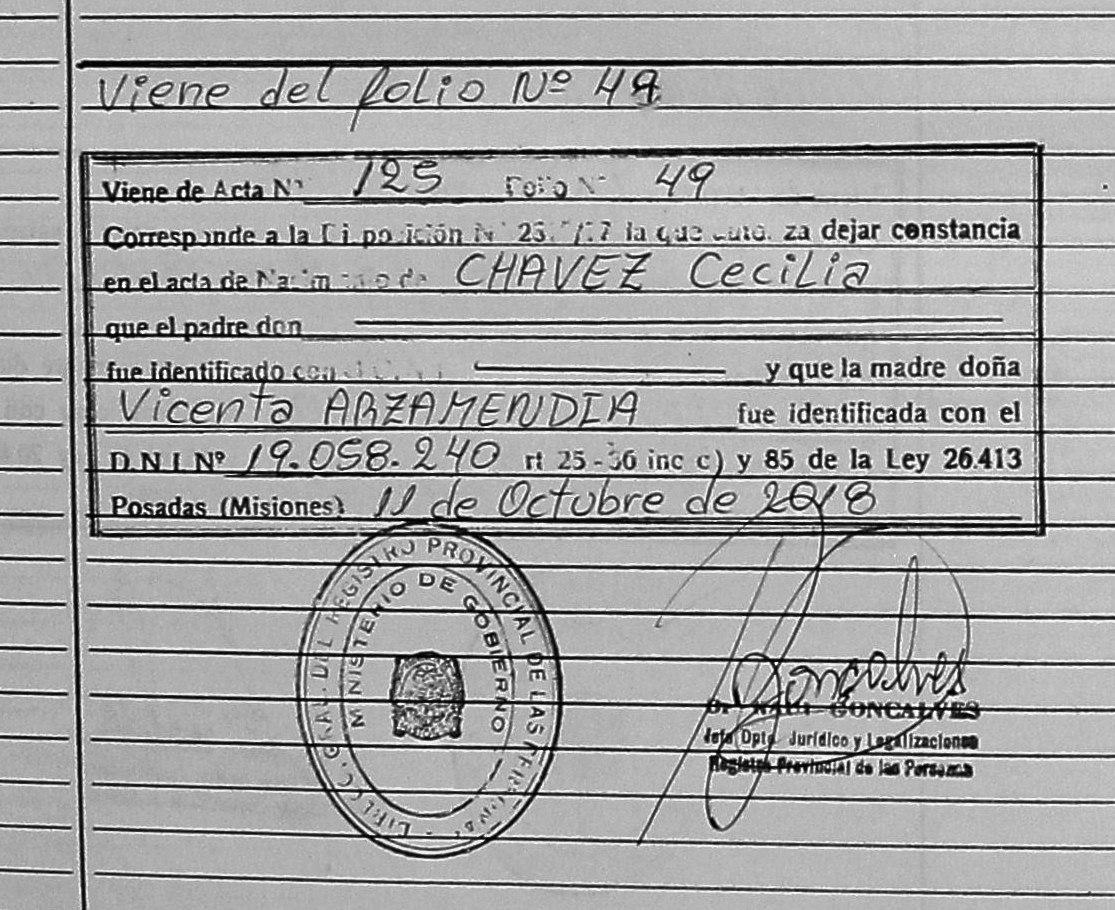 Viene del folio Nº 49
Viene de Acta Nº 125 Folio Nº 49
Corresponde a la Disposición Nº la que autoriza dejar constancia
en el acta de Nacimiento de CHAVEZ Cecilia
que el padre don
fue identificado con el y que la madre doña
Vicenta ARZAMENDIA fue identificada con el
D.N.I. Nº 19.058.240 rt 25-36 inc c) y 85 de la Ley 26.413
Posadas (Misiones) 11 de Octubre de 2018
DIRECC. GRAL. DEL REGISTRO PROVINCIAL DE LAS PERSONAS
MINISTERIO DE GOBIERNO
Goncalves
GONCALVES
Jefe Dpto. Jurídico y Legalizaciones
Registro Provincial de las Personas